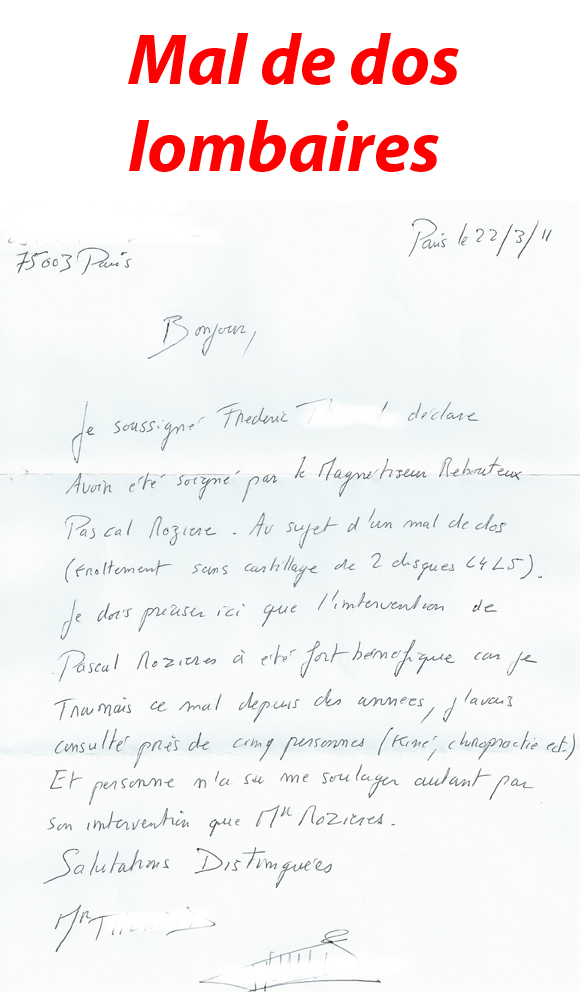 Mal de dos
lombaires
Paris le 22/3/11
75003 Paris
Bonjour,
Je soussigné Frederic déclare
Avoir été soigné par le Magnétiseur Rebouteux
Pascal Roziere. Au sujet d'un mal de dos
(Frottement sans cartillage de 2 disques L4 L5).
Je dois préciser ici que l'intervention de
Pascal Rozieres à été fort bénéfique car je
Trainais ce mal depuis des années, j'avais
consulté près de cinq personnes (Kiné, chiropractie ect.)
Et personne n'a su me soulager autant par
son intervention que Mr Rozieres.
Salutations Distinguées
Mr